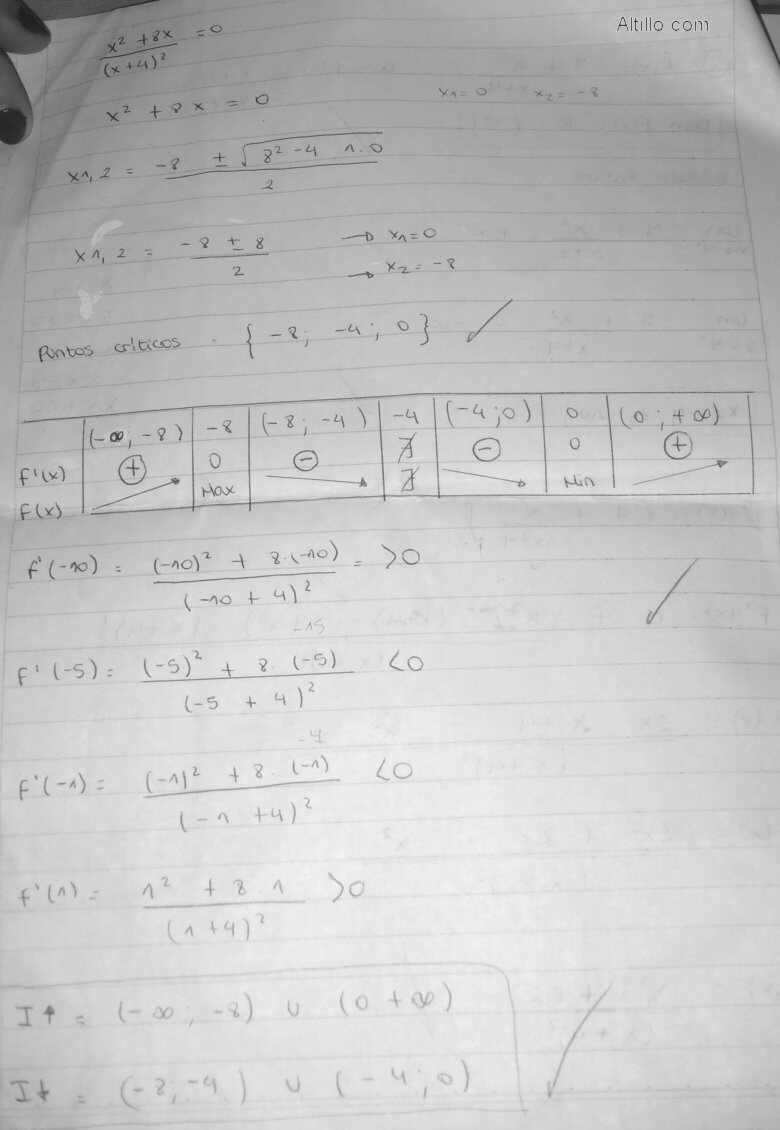 Altillo com
x² + 8x / (x+4)² = 0
x² + 8x = 0 x1 = 0 x2 = -8
x1,2 = -8 ± √(8² - 4 1·0) / 2
x1,2 = -8 ± 8 / 2 → x1 = 0
→ x2 = -8
Puntos críticos . { -8; -4; 0 } ✓
(-∞; -8) -8 (-8; -4) -4 (-4;0) 0 (0; +∞)
f'(x) + 0 - ∄ - 0 +
F(x) ↗ Max ↘ ∄ ↘ Min ↗
f'(-10) = (-10)² + 8·(-10) / (-10 + 4)² = >0 ✓
-15
F'(-5) = (-5)² + 8·(-5) / (-5 + 4)² <0
-7
F'(-1) = (-1)² + 8·(-1) / (-1 + 4)² <0
f'(1) = 1² + 8·1 / (1+4)² >0
I↑ = (-∞; -8) ∪ (0 +∞)
I↓ = (-8; -4) ∪ (-4; 0) ✓